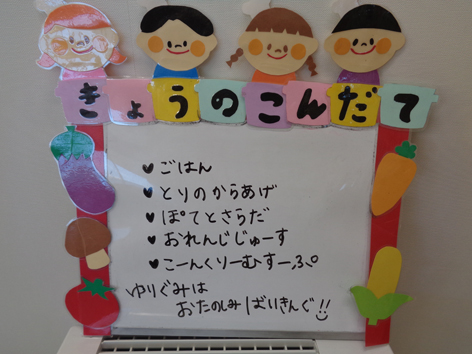 きょうのこんだて
♥ごはん
♥とりのからあげ
♥ぽてとさらだ
♥おれんじじゅーす
♥こーんくりーむすーぷ
ゆりぐみは
おたのしみばいきんぐ!!